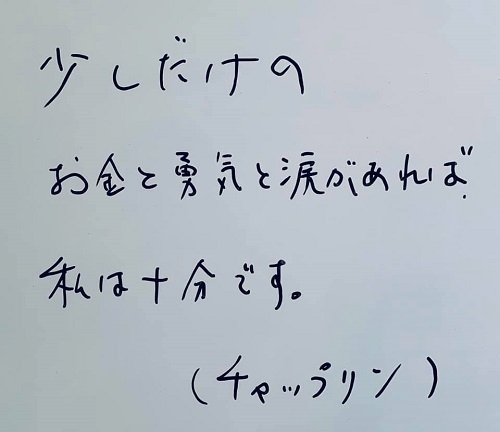 少しだけの
お金と勇気と涙があれば
私は十分です。
(チャップリン)